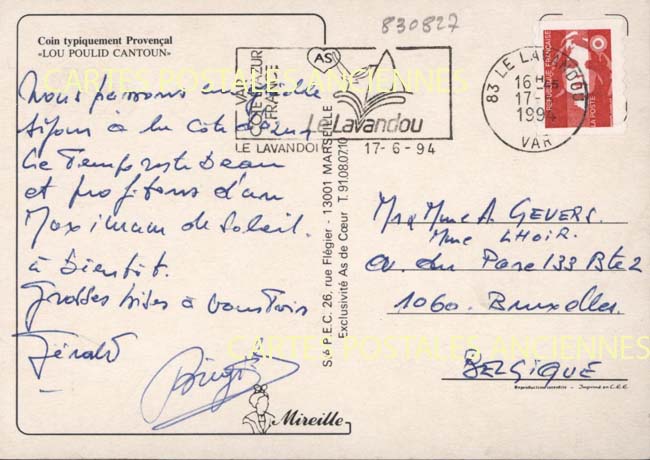 830827
Coin typiquement Provençal
«LOU POULID CANTOUN»
Nous passons une belle
séjour à la côte d'azur
Le Temps reste beau
et profitons d'un
Maximum de Soleil.
à bientôt.
Grosses bises à vous Trois
Gérald
Mireille
S.A.P.E.C. 26, rue Flégier - 13001 MARSEILLE
Exclusivité As de Cœur T. 91.080710
VAR
CÔTE D'AZUR
FRANCE
AS
Le Lavandou
LE LAVANDOU
17-6-94
83 LE LAVANDOU
16 H
17-
1994
VAR
REPUBLIQUE FRANÇAISE
LA POSTE
Mr Mme A. GEVERS.
Mme LHOIR.
av. du Parc 133 Bte 2
1060. Bruxelles.
BELGIQUE
Reproduction interdite - Imprimé en C.E.E.
CARTES POSTALES ANCIENNES
CARTES POSTALES ANCIENNES